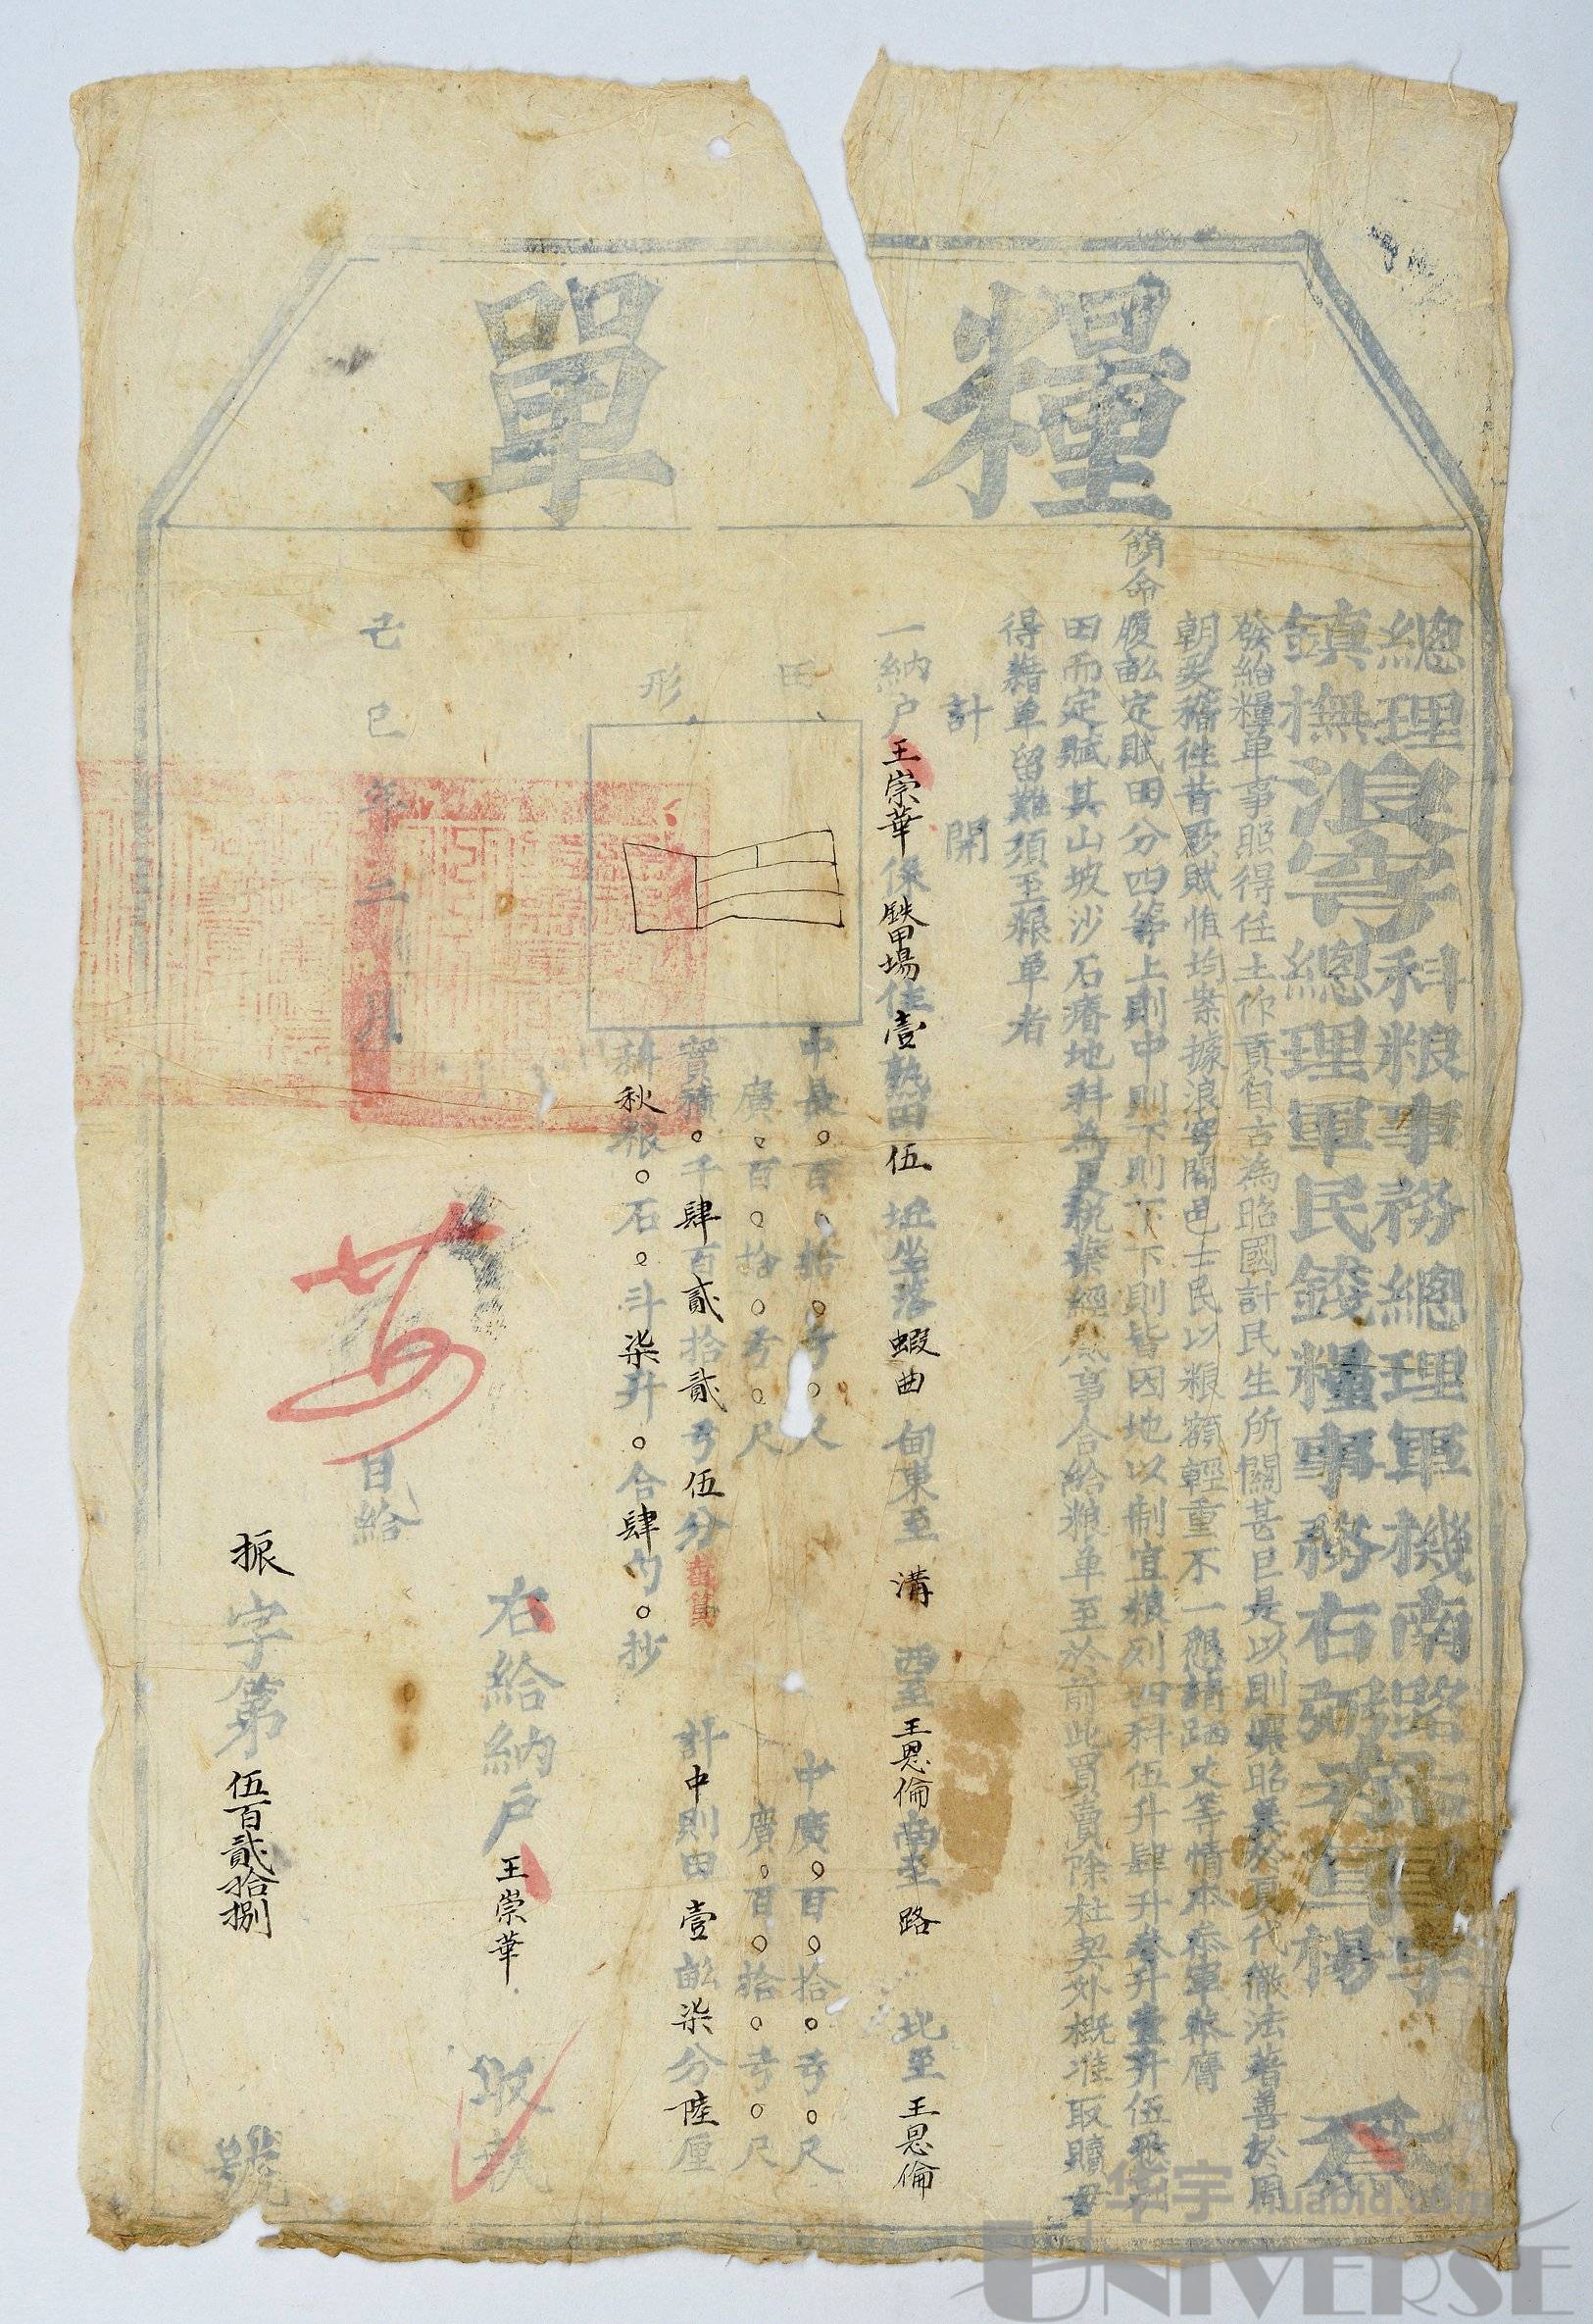 糧單
總理浪穹科粮事務總理軍機南路
鎮撫浪穹總理軍民錢糧事務右弼 楊 為
發給糧单事照得任土作貢自古為昭國計民生所關甚巨是以則壤昭美於夏代徹法著善於周
朝爰稽徃昔 賦惟均案據浪穹閤邑士民以粮額輕重不一懇請 丈等情 奉膺
簡命履畝定賦田分四等上則中則下則下下則皆因地以制宜粮列四科伍升肆升叁升壹升伍
田而定賦其山坡沙石瘠地科為夏税 經 事合給粮单至於前此買賣除杜契外概准取贖毋
得藉单留難須至粮单者
計開
一納户王崇華係鉄甲場住壹熟田伍坵坐落蝦曲甸東至溝西至王恩倫南至路北至王恩倫
田形
中長○百○拾○弓○尺 中廣○百○拾○弓○尺
廣○百○拾○弓○尺 廣○百○拾○弓○尺
實積○千肆百貳拾貳弓伍分 計中則田壹畝柒分陸厘
科秋粮○石○斗柒升○合肆勺○抄
右給納户王崇華 收執
己巳年二月 日給
振字第伍百貳拾捌號
华宇
huabid.com
UNIVERSE